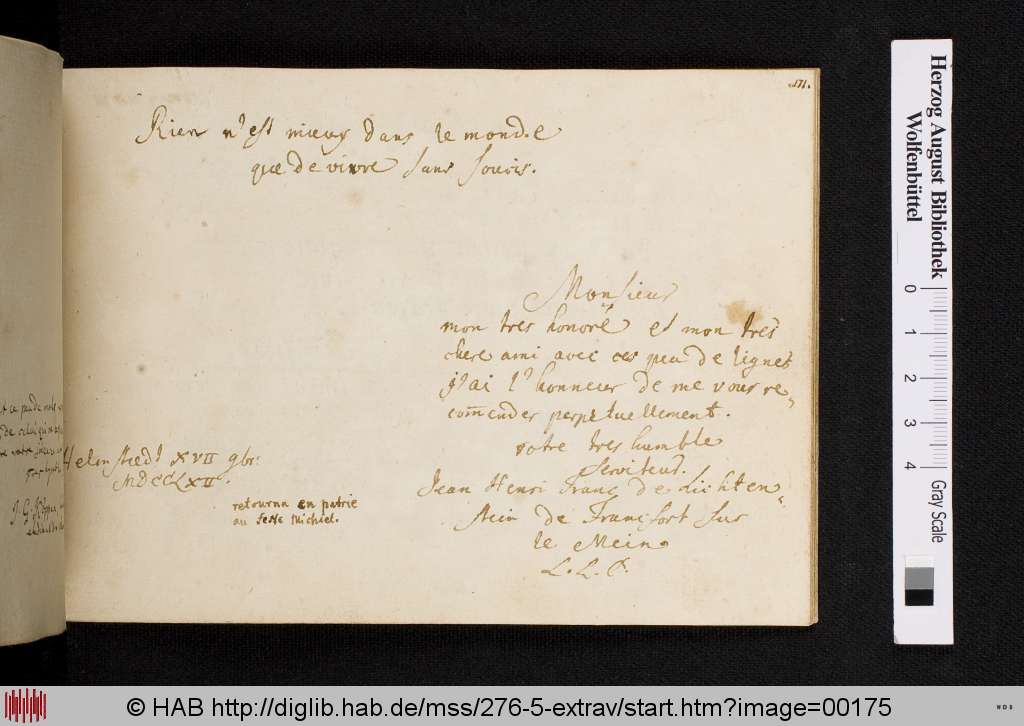 171.
Rien n'est mieux dans le monde
que de vivre sans soucis.
Monsieur
mon tres honoré et mon tres
chere ami avec ces peu de lignes
j'ai l'honneur de me vous re-
com̄ender perpetuellement.
votre tres humble
serviteur.
Jean Henri Franç de Lichten-
stein de Francfort sur
le Mein
L. L. C.
Helmstedt XVII 9br:
MDCCLXII.
retourna en patrie
au feste Michael.
Herzog August Bibliothek
Wolfenbüttel
0 1 2 3 4
Gray Scale
© HAB http://diglib.hab.de/mss/276-5-extrav/start.htm?image=00175
WDB